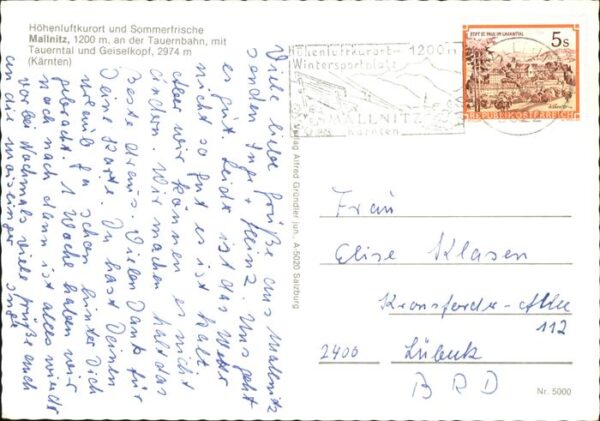 Höhenluftkurort und Sommerfrische
Mallnitz, 1200 m. an der Tauernbahn, mit
Tauerntal und Geiselkopf, 2974 m
(Kärnten)
Viele liebe Grüße aus Mallnitz
senden Inge + Heinz. Uns geht
es gut. Leider ist das Wetter
nicht so gut es ist kalt.
Aber wir können es nicht
ändern. Wir machen halt das
Beste draus. Vielen Dank für
Deine Karte. Du hast Deinen
Urlaub ja schon hinter Dich
gebracht. 1 Woche haben wir
noch nach dann ist alles wieder
vorbei. Nochmals viele Grüße auch
an die
Inge
Höhenluftkurort - 1200 m
Wintersportplatz
MALLNITZ
Kärnten
STIFT ST. PAUL IM LAVANTTAL
5 S
REPUBLIK ÖSTERREICH
Verlag Alfred Gründler jun., A 5020 Salzburg
Frau
Elise Klasen
Kronsforder-Allee
112
2400 Lübeck
BRD
Nr. 5000